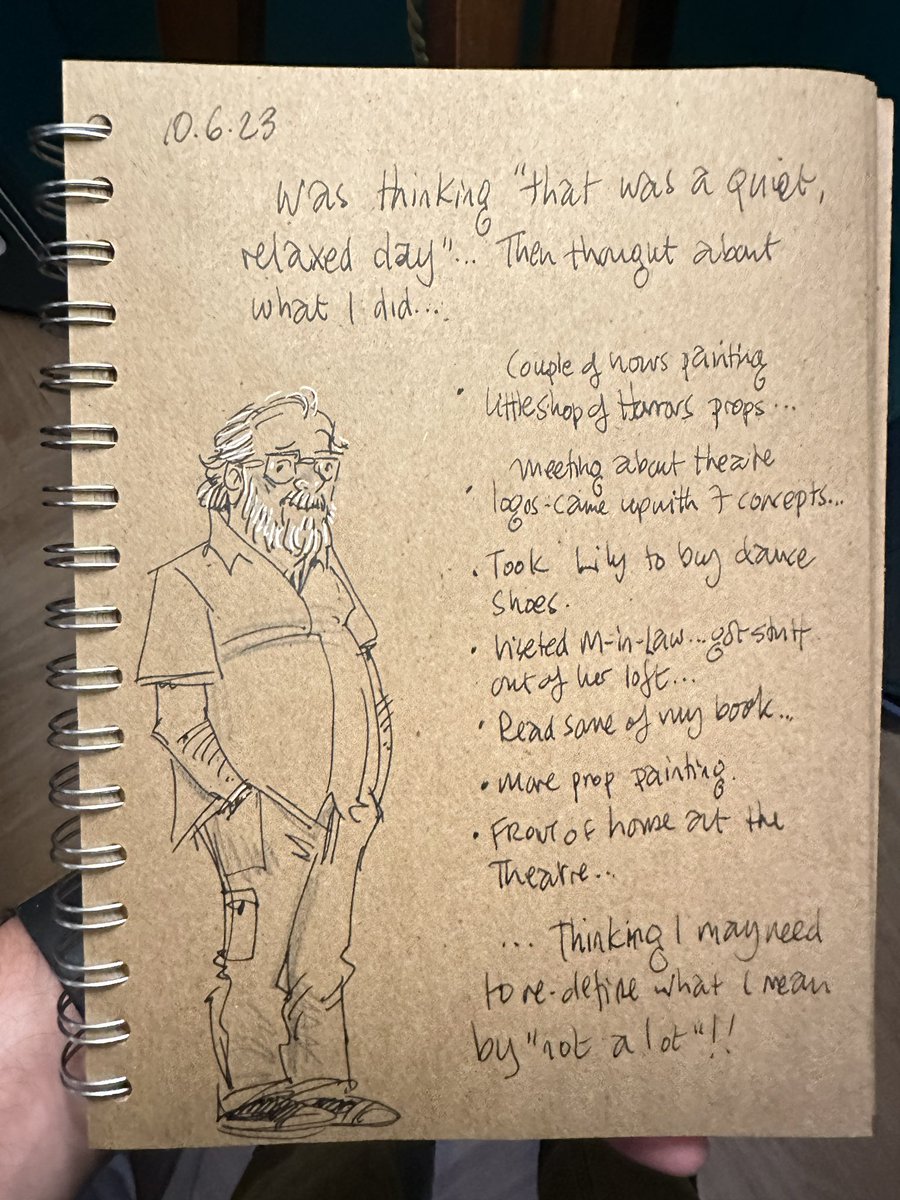 10.6.23
Was thinking "that was a quiet,
relaxed day"... Then thought about
what I did...
Couple of hours painting
• Little shop of Horrors props...
meeting about theatre
• logos - came up with 7 concepts...
• Took Lily to buy dance
shoes.
• Visited M-in-Law... got stuff
out of her loft...
• Read some of my book...
• More prop painting.
• Front of house at the
Theatre...
... Thinking I may need
to re-define what I mean
by "not a lot"!!